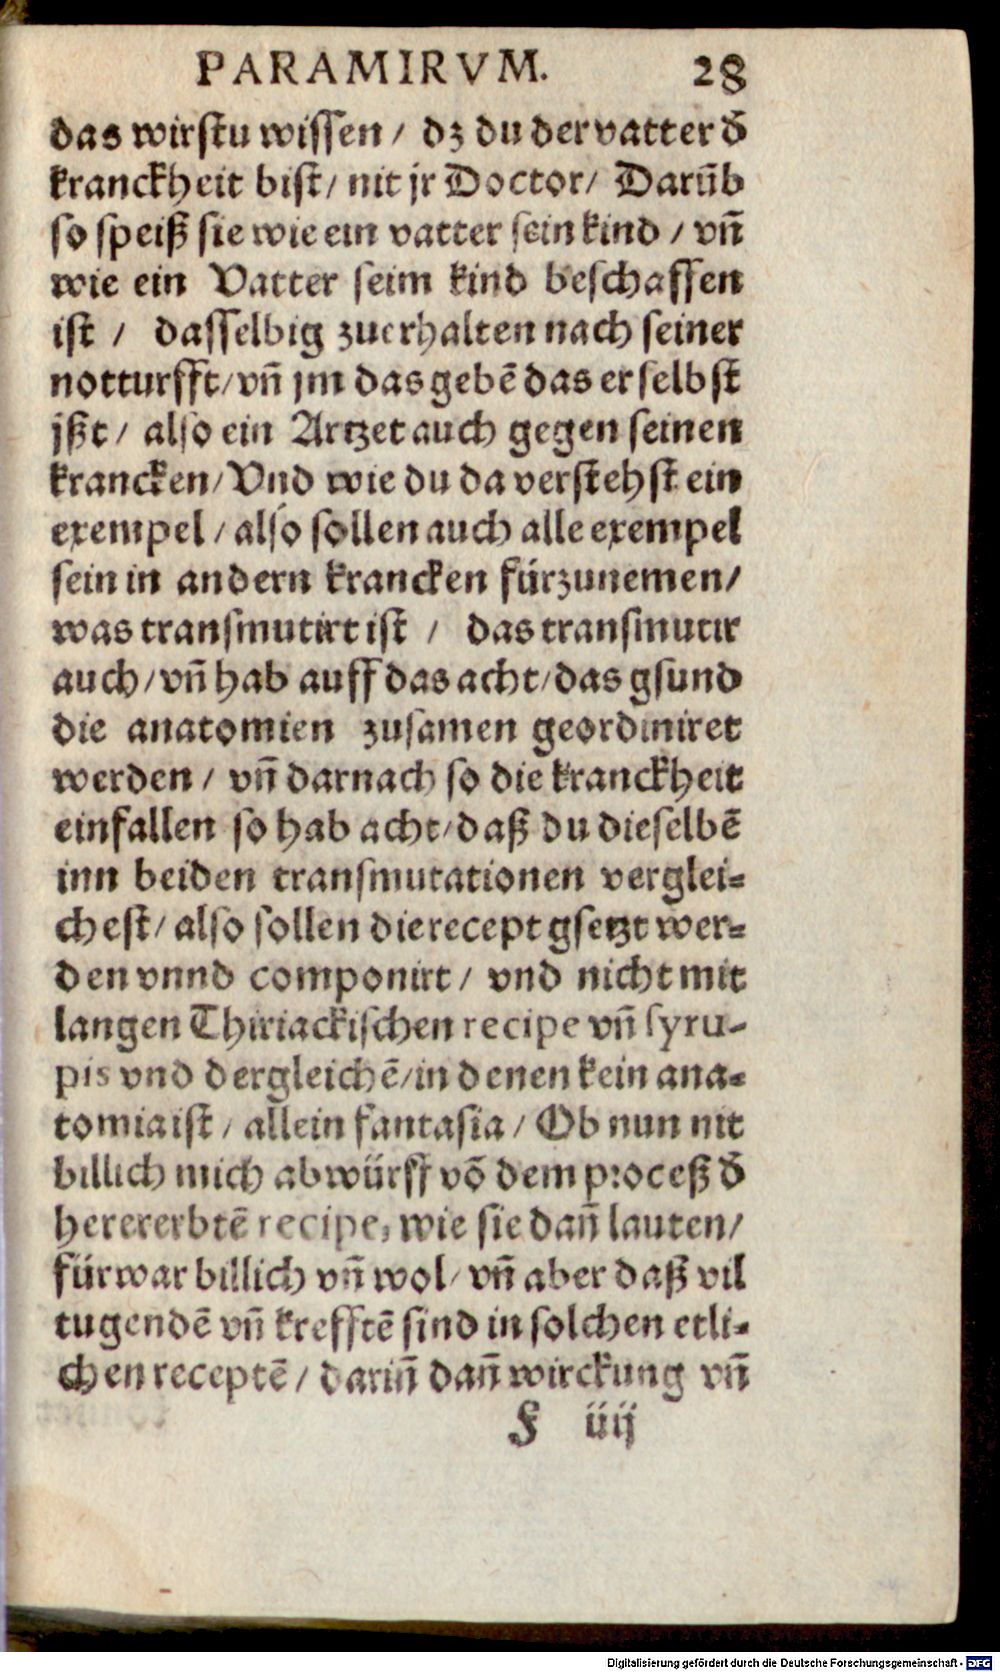 PARAMIRVM. 28
das wirstu wissen / dz du der vatter d̄
kranckheit bist / nit jr Doctor / Darūb
so speiß sie wie ein vatter sein kind / vn̄
wie ein Vatter seim kind beschaffen
ist / dasselbig zuerhalten nach seiner
notturfft / vn̄ jm das gebē das er selbst
jßt / also ein Artzet auch gegen seinen
krancken / Vnd wie du da verstehst ein
exempel / also sollen auch alle exempel
sein in andern krancken fürzunemen /
was transmutirt ist / das transmutir
auch / vn̄ hab auff das acht / das gsund
die anatomien zusamen geordiniret
werden / vn̄ darnach so die kranckheit
einfallen so hab acht / daß du dieselbē
inn beiden transmutationen verglei⸗
chest / also sollen die recept gsetzt wer⸗
den vnnd componirt / vnd nicht mit
langen Thiriackischen recipe vn̄ syru-
pis vnd dergleichē / in denen kein ana⸗
tomia ist / allein fantasia / Ob nun nit
billich mich abwürff vō dem proceß d̄
herererbtē recipe, wie sie dan̄ lauten /
fürwar billich vn̄ wol / vn̄ aber daß vil
tugendē vn̄ krefftē sind in solchen etli⸗
chen receptē / darin̄ dan̄ wirckung vn̄
F iiij
Digitalisierung gefördert durch die Deutsche Forschungsgemeinschaft - DFG